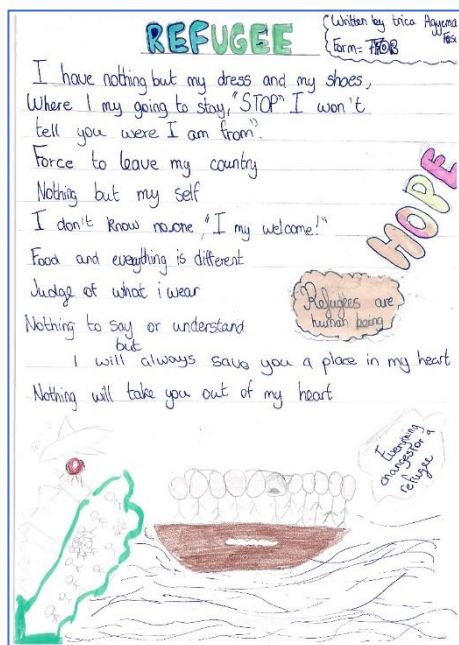 REFUGEE
Written by Erica
Form=
I have nothing but my dress and my shoes,
Where I my going to stay, "STOP" I won't
tell you were I am from".
Force to leave my country
Nothing but my self
I don't know no.one, "I my welcome!"
HOPE
Food and everything is different
Judge of what i wear
Refugees are
human being
Nothing to say or understand
but
I will always save you a place in my heart
Nothing will take you out of my heart
Everything
changes for a
refugee